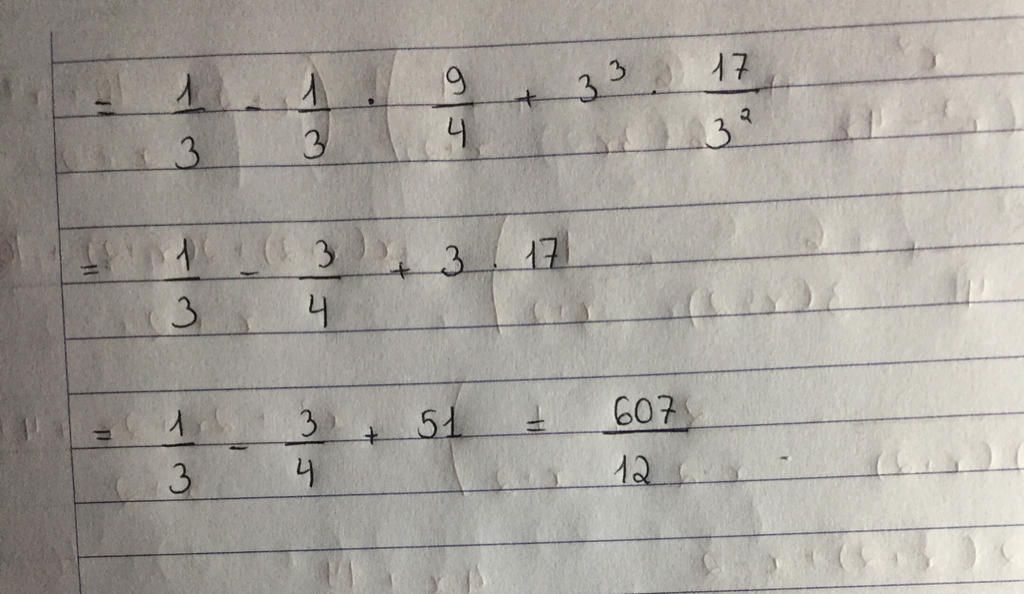 = 1/3 - 1/3 · 9/4 + 3³ · 17/3²
= 1/3 - 3/4 + 3 · 17
= 1/3 - 3/4 + 51 = 607/12